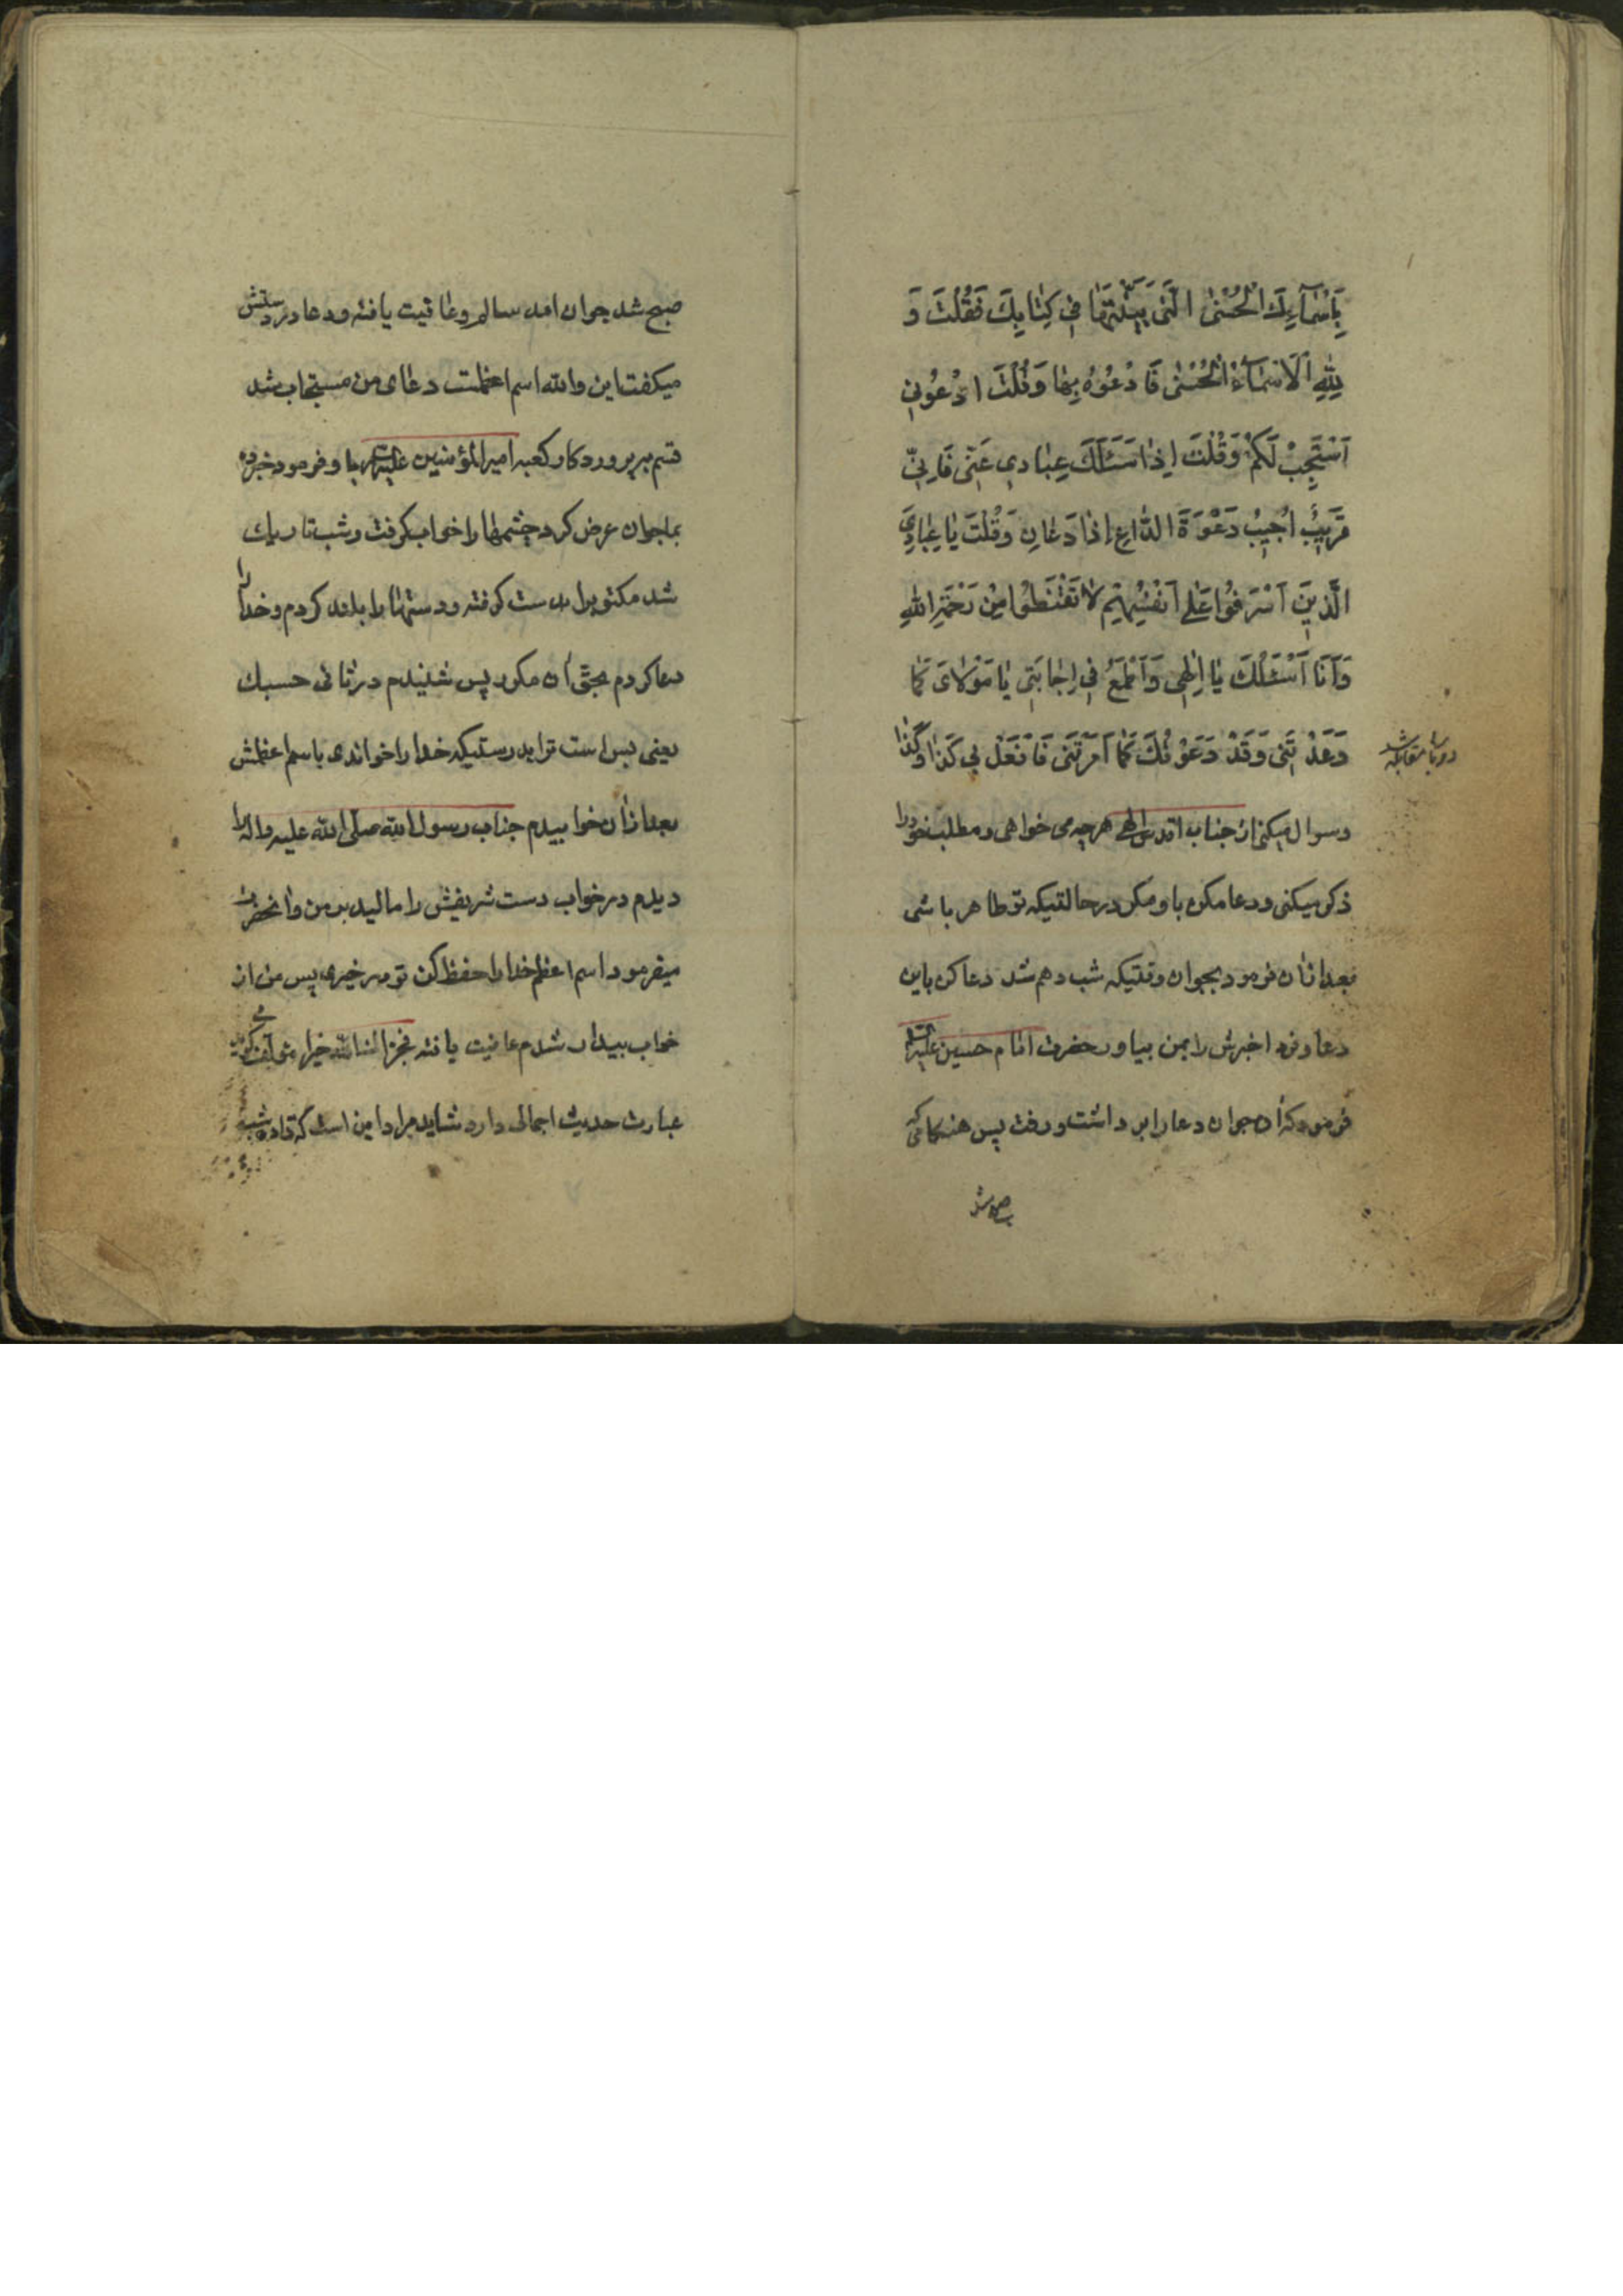 بِاَسْمٰآءِكَ الْحُسْنٰى الَّتى بَيَّنْتَهٰا فى كِتٰابِكَ فَقُلْتَ وَ
لِلّٰهِ الْاَسْمٰآءُ الْحُسْنٰى فَادْعُوُهُ بِهٰا وَقُلْتَ ادْعُونى
اَسْتَجِبْ لَكُمْ وَقُلْتَ اِذٰا سَئَلَكَ عِبٰادى عَنّى فَاِنّى
قَريبٌ اُجيبُ دَعْوَةَ الدّٰاعِ اِذٰا دَعٰانِ وَقُلْتَ يٰا عِبٰادِىَ
الَّذينَ اَسْرَفُوا عَلى اَنْفُسِهِمْ لاٰ تَقْنَطُوا مِنْ رَحْمَةِ اللّٰهِ
وَاَنَا اَسْئَلُكَ يٰا اِلٰهى وَاَطْمَعُ فى اِجٰابَتى يٰا مَوْلاٰىَ كَمٰا
وَعَدْتَنى وَقَدْ دَعَوْتُكَ كَمٰا اَمَرْتَنى فَافْعَلْ بى كَذٰا وَكَذٰا
وسوال ميكنى از جناب اقدس الهى هرچه مى خواهى ومطلب خود را
ذكر ميكنى ودعا مكن باو مكر درحالتيكه تو طاهر باشى
بعد ازان فرمود بجوان وقتيكه شب دهم شد دعا كن باين
دعا وفردا خبرش را بمن بياور حضرت امام حسين عليه السلام
فرمود كه ان جوان دعا را برداشت ورفت پس هنكامى كه
صبح شد
صبح شد جوان امد سالم وعافيت يافته ودعا در دستش
ميكفت اين والله اسم اعظمت دعاى من مستجاب شد
قسم بپروردكار كعبه امير المؤمنين عليه السلام وفرمود خبر ده
بما جوان عرض كرد چشمها را خواب كرفت وشب تاريك
شد مكتوبرا بدست كرفته ودستها را بلند كردم وخدا را
دعا كردم بحق ان مكرر پس شنيدم در ثانى حسبك
يعنى بس است ترا بدرستيكه خدا را خواندى باسم اعظمش
بعد ازان خوابيدم جناب رسول الله صلى الله عليه واله را
ديدم در خواب دست شريفش را ماليد بر من وانحضرت
ميفرمود اسم اعظم خدا را حفظ كن تو بر خيرى پس من از
خواب بيدار شدم عافيت يافته فجزاك الله خيرا مؤلف كويد
عبارت حديث اجمالى دارد شايد مراد اين است كه تا ده شب